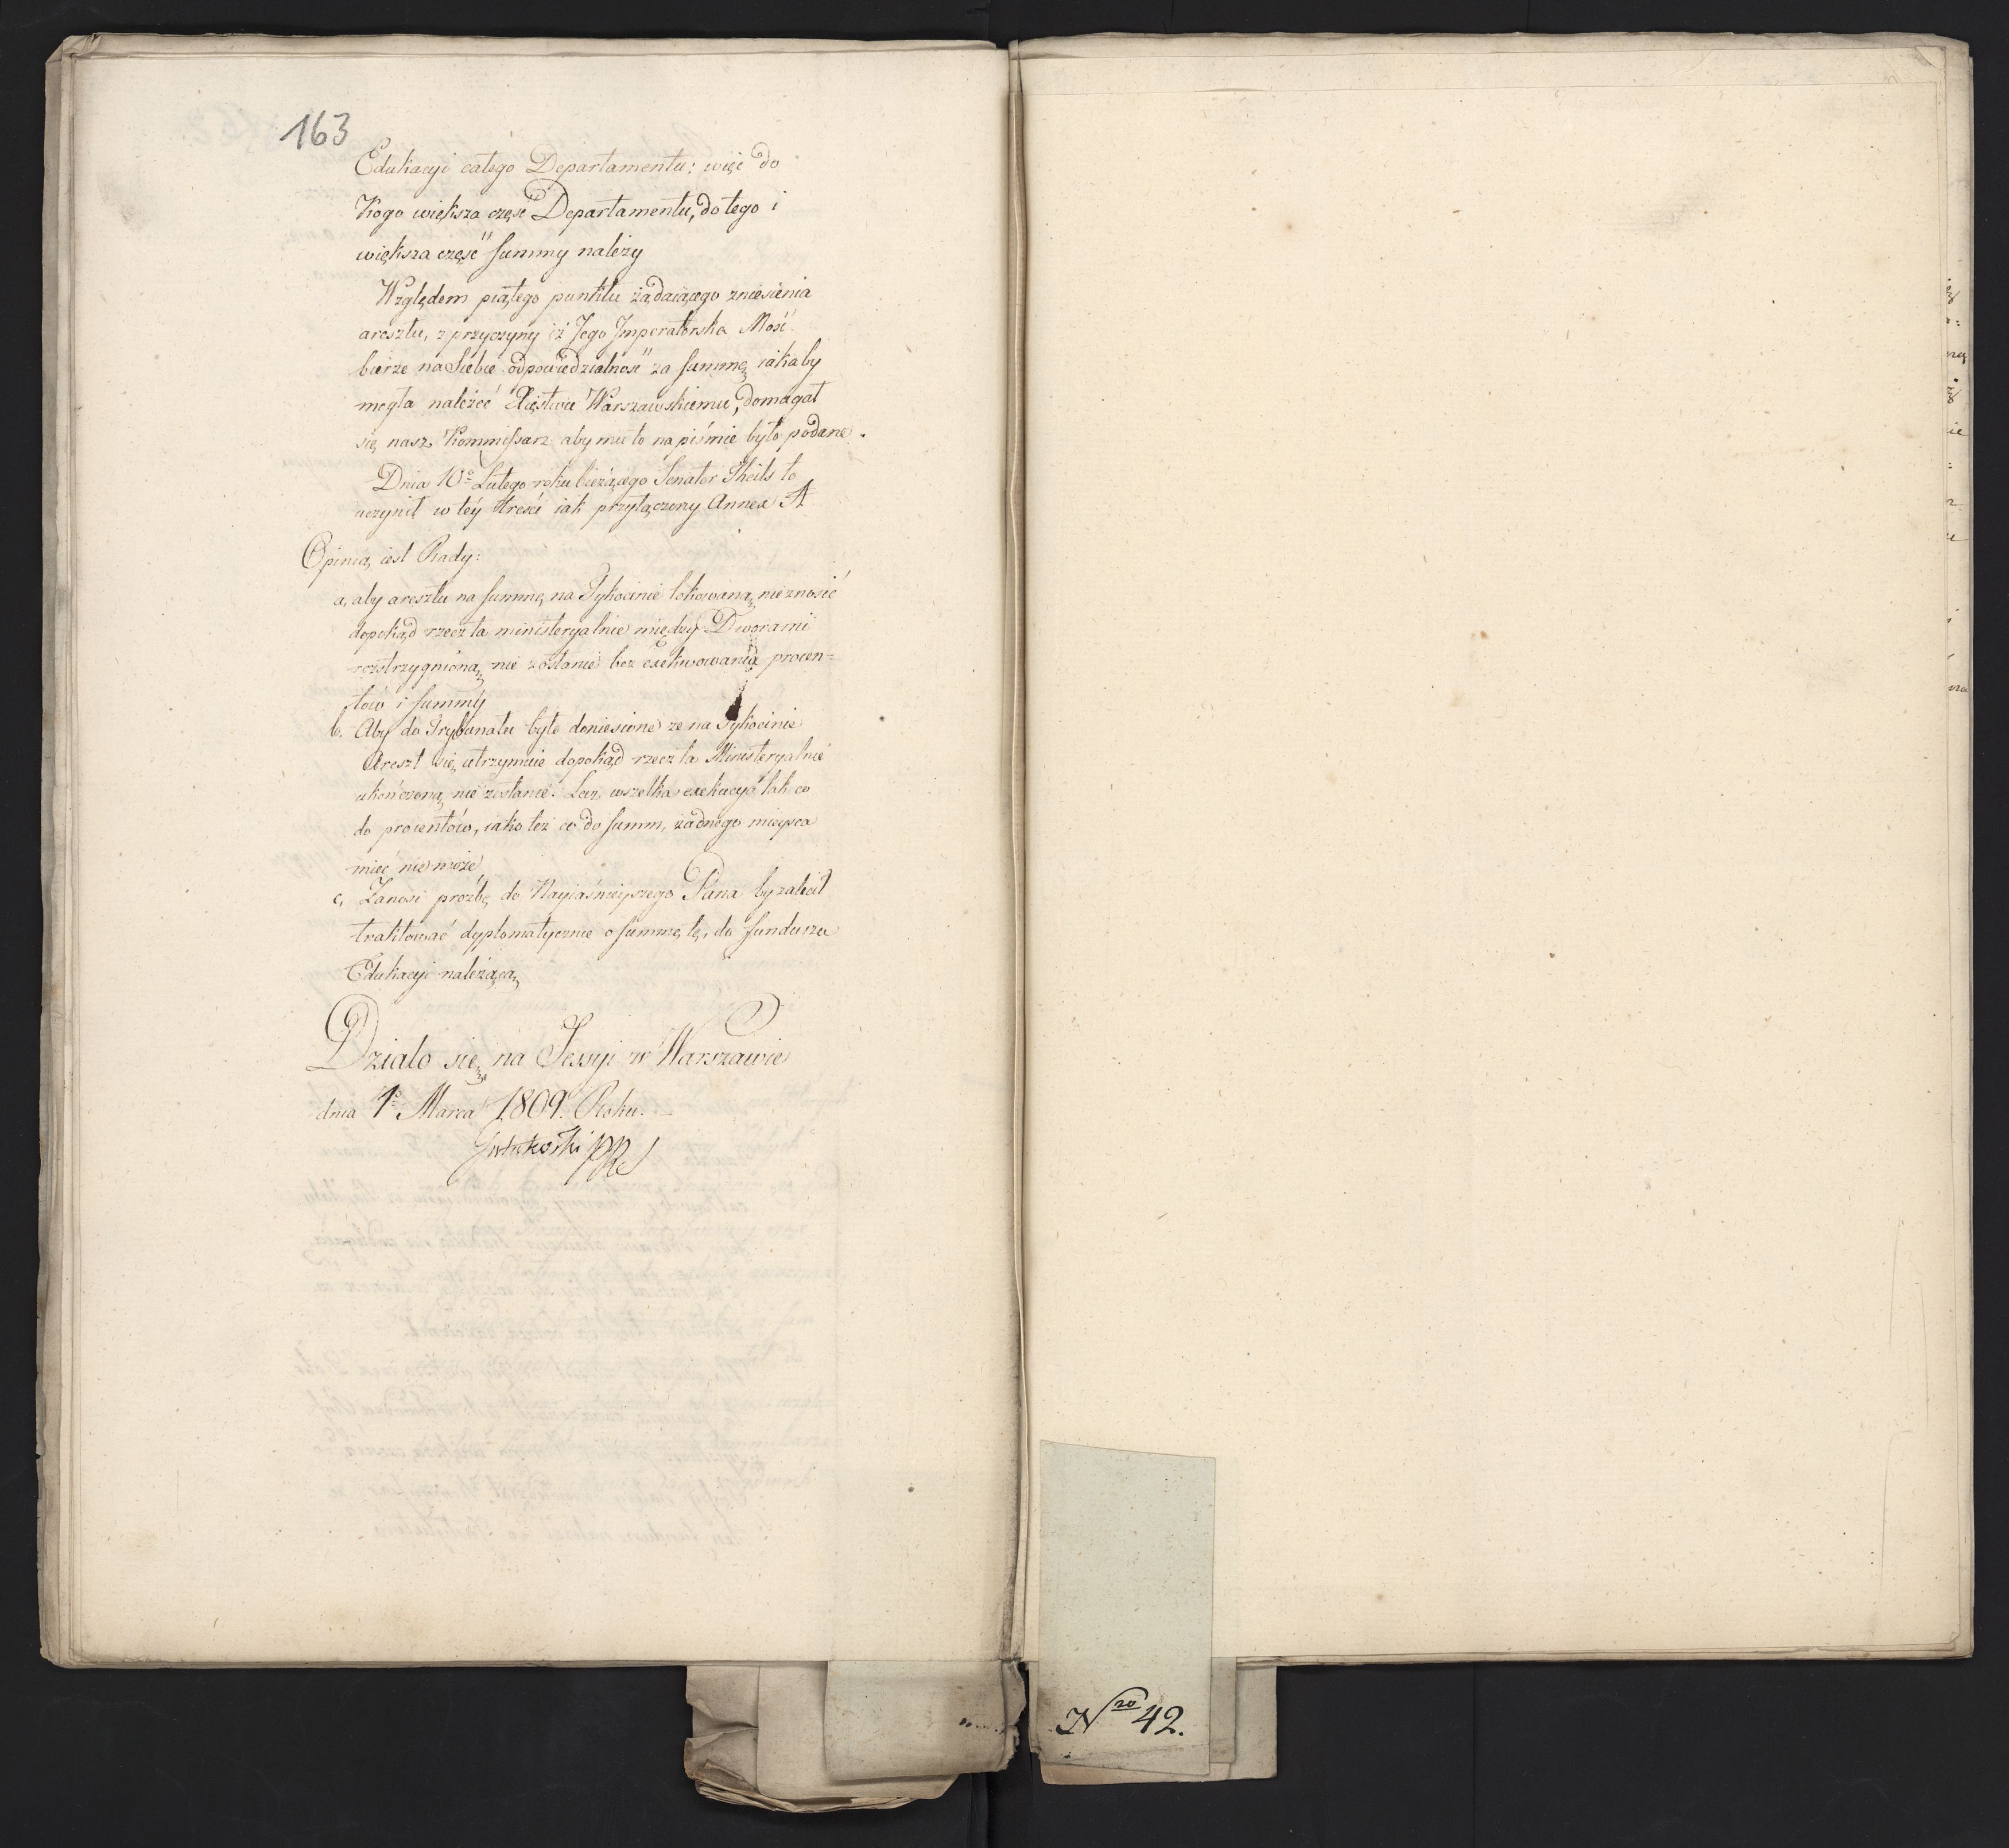 163
Edukacyi całego Departamentu; więc do
Kogo większa część Departamentu, do tego i
większa część summy należy
Względem piątego punktu żądaiącego zniesienia
aresztu, z przyczyny iż Jego Imperatorska Mość
bierze na Siebie odpowiedzialność za summę iakaby
mogła należeć Xięstwu Warszawskiemu, domagał
się nasz Kommissarz aby mu to na piśmie było podane.
Dnia 10º Lutego roku bieżącego Senator Theils to
uczynił w téy treści iak przyłączony Annex A
Opinią iest Rady:
a, aby aresztu na summę na Tykocinie lokowaną nieznosić
dopokąd rzecz ta ministeryalnie między Dworami
rozstrzygnioną nie zostanie bez exekwowania procen=
tów i summy
b. Aby do Trybunału było doniesione ze na Tykocinie
Areszt się utrzymuie dopokąd rzecz ta Ministeryalnie
ukończoną nie zostanie. Lecz wszelka exekucya tak co
do procentów, iako też co do summ, żadnego mieysca
mieć nie może,
c, Zanosi prozbę do Nayiaśnieyszego Pana by zalecił
traktować dyplomatycznie o summę tę, do funduszu
Edukacyi należącą
Działo się na Sessyi w Warszawie
dnia 1º Marca 1809. Roku.
Gutakowski PR
Nro 42.